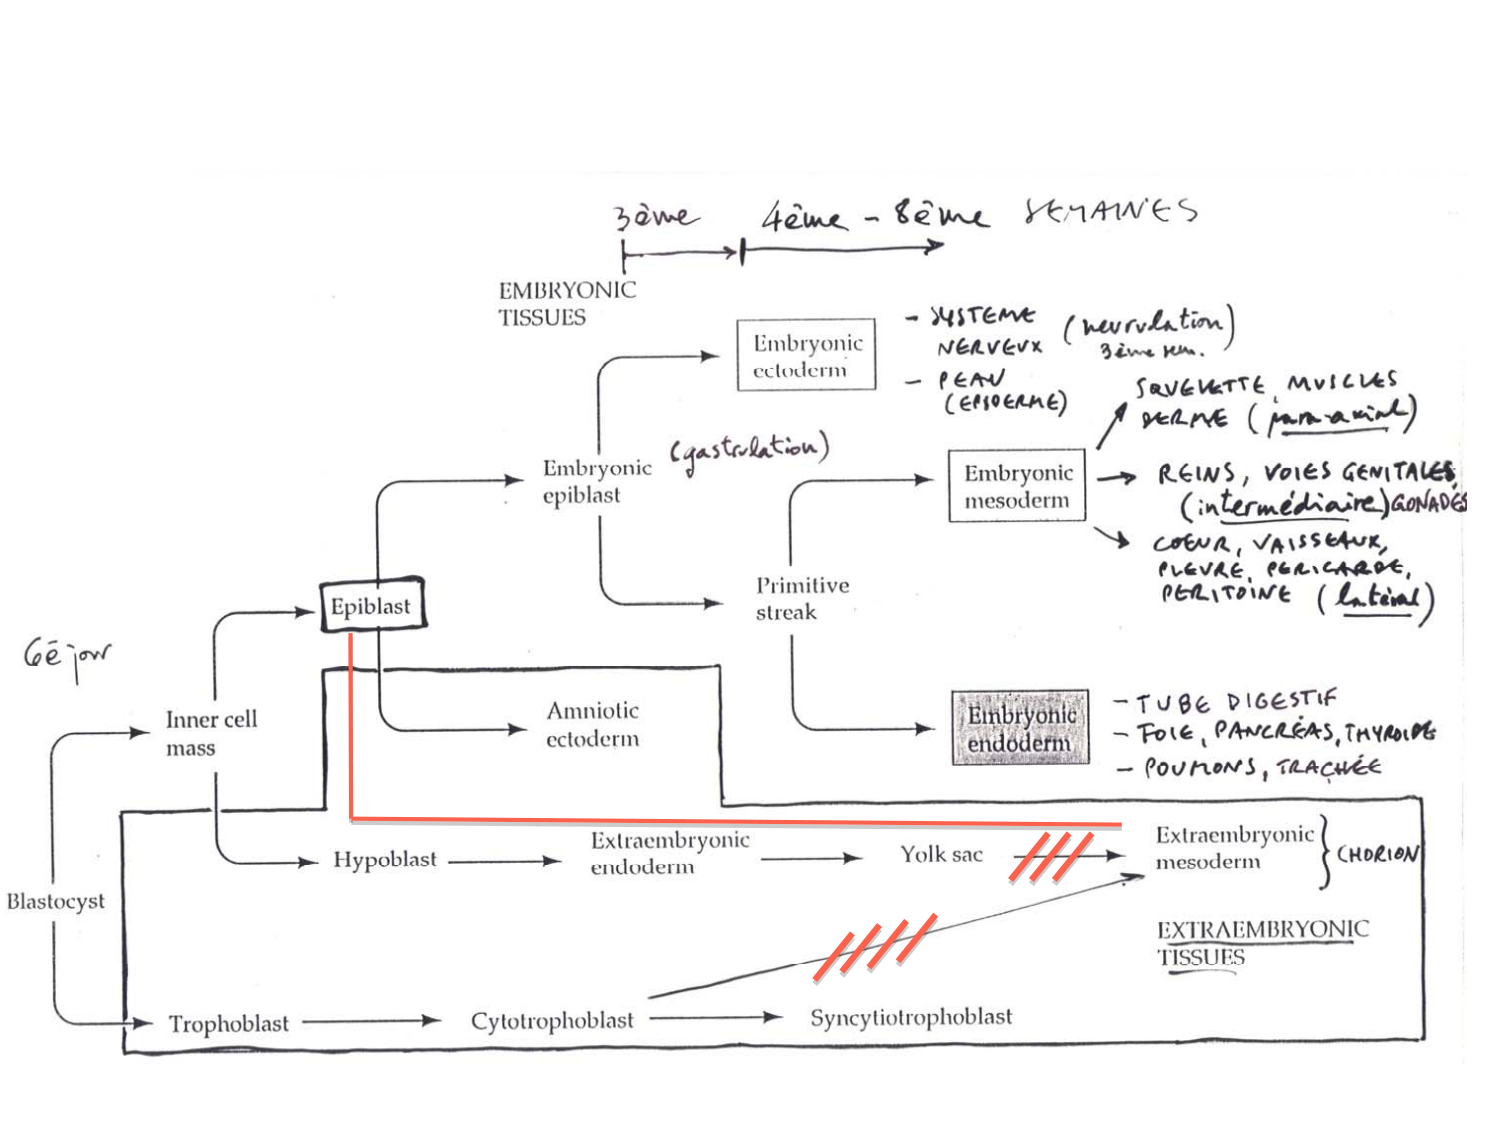 3ème 4ème - 8ème SEMAINES
EMBRYONIC
TISSUES
Embryonic
ectoderm
- SYSTEME
NERVEUX
(neurulation)
3ème sem.
- PEAU
(EPIDERME)
SQUELETTE, MUSCLES
DERME (para-axial)
Embryonic
epiblast
(gastrulation)
Embryonic
mesoderm
REINS, VOIES GENITALES,
(intermédiaire) GONADES
COEUR, VAISSEAUX,
PLEVRE, PERICARDE,
PERITOINE (latéral)
Primitive
streak
Epiblast
6è jour
Inner cell
mass
Amniotic
ectoderm
Embryonic
endoderm
- TUBE DIGESTIF
- FOIE, PANCRÉAS, THYROIDE
- POUMONS, TRACHÉE
Hypoblast
Extraembryonic
endoderm
Yolk sac
Extraembryonic
mesoderm
CHORION
Blastocyst
EXTRAEMBRYONIC
TISSUES
Trophoblast
Cytotrophoblast
Syncytiotrophoblast